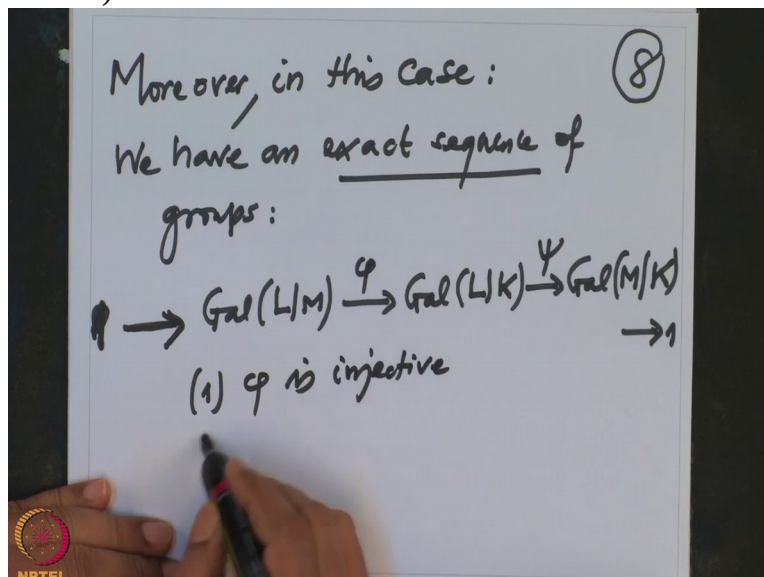 Moreover, in this case: ⑧
We have an exact sequence of
groups:
1 → Gal(L|M) →^φ Gal(L|K) →^ψ Gal(M|K)
→ 1
(1) φ is injective
NPTEL